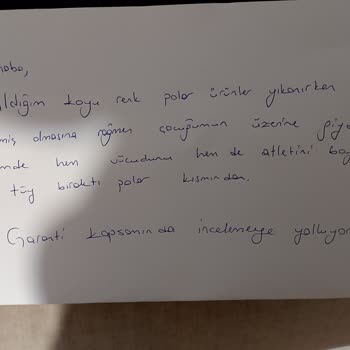 haba,
ldığım koyu renk polar ürünler yıkanırken
miş olmasına rağmen çocuğumun üzerine giye
inde hem vücudunu hem de atletini bo
tüy bıraktı polar kısmından.
Garanti kapsamında incelemeye yolluyor